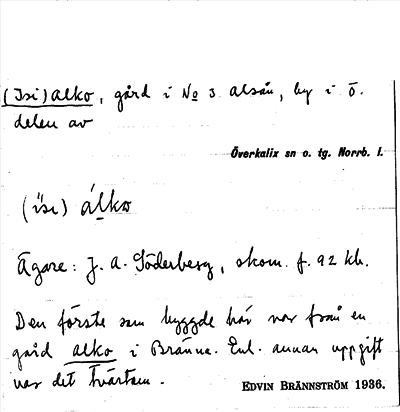 (Isi) alko, gård i No 3 alsån, by i ö.
delen av
Överkalix sn o. tg. Norrb. l.
(ísi) álko
Ägare: J. A. Söderberg, skom. f. 92 kb.
Den förste som byggde här var från en
gård alko i Bränna. Enl. annan uppgift
var det tvärtom.
EDVIN BRÄNNSTRÖM 1936.